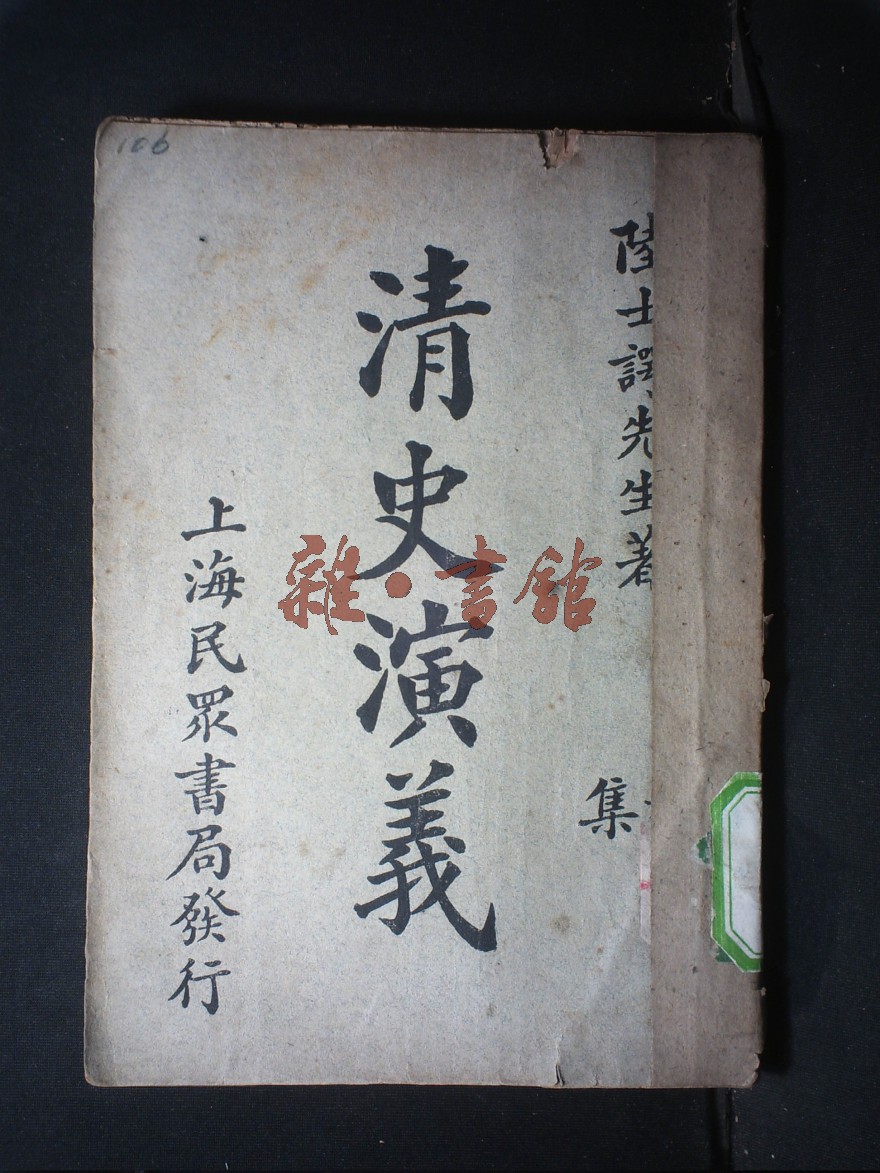 陸士諤先生著
集
清史演義
上海民眾書局發行
106
雜·書館